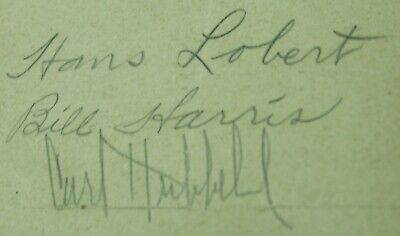 Hans Lobert
Bill Harris
Carl Hubbell